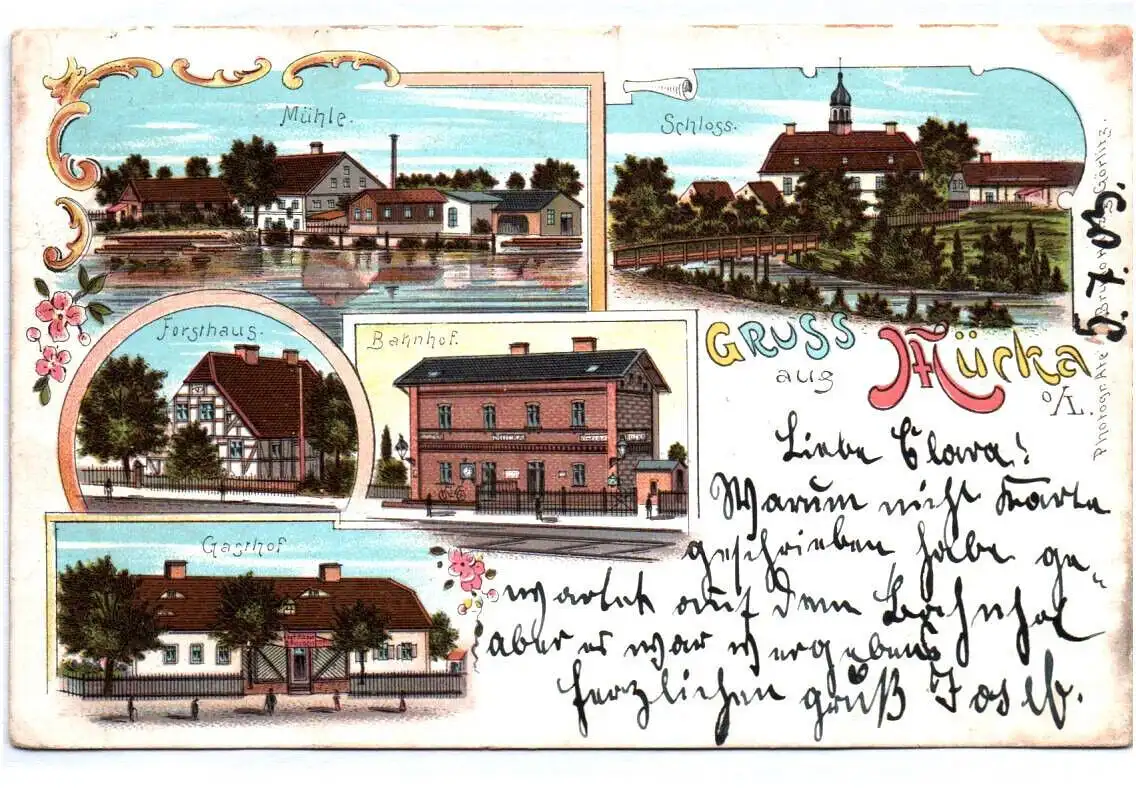 Mühle.
Schloss.
Forsthaus.
Bahnhof.
Gasthof
GRUSS
aus
Mücka
O/L.
Photographie Bruno Görlitz.
5.7.03.
Liebe Clara!
Warum nicht Karte
geschrieben habe ge-
wartet auf dem Bahnhof
aber es war vergebens
herzlichen gruß Josef.